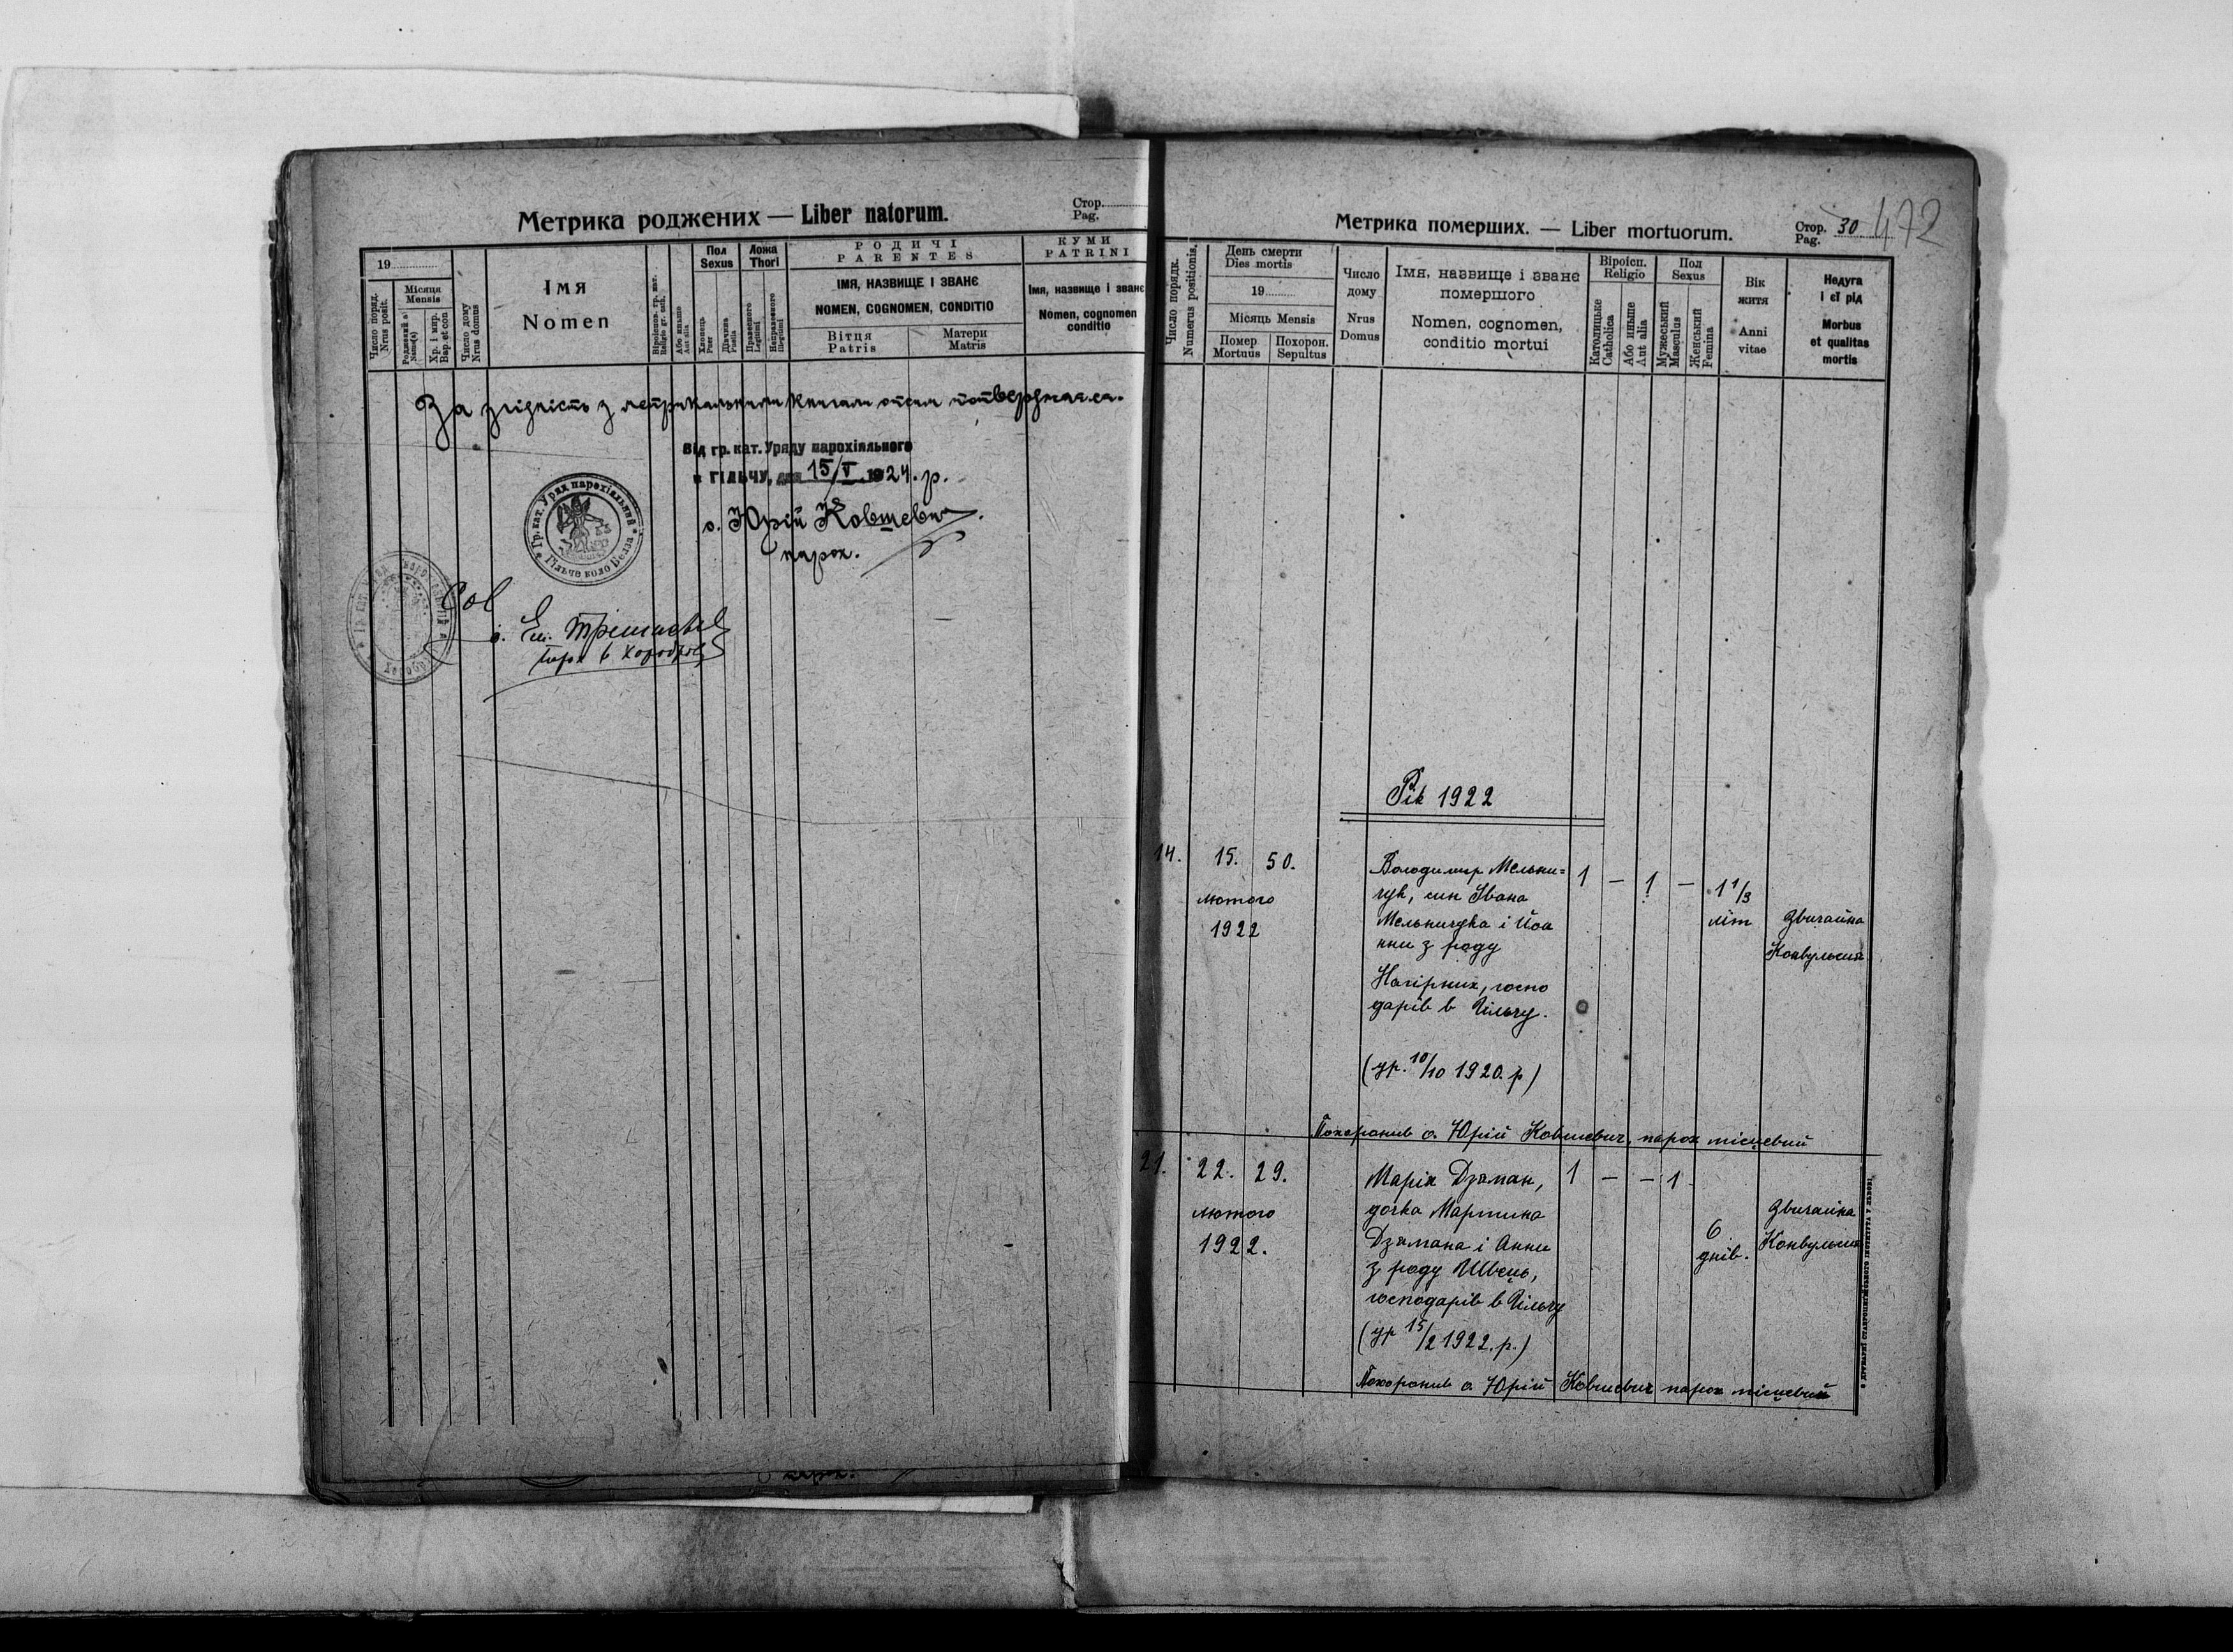 Метрика роджених — Liber natorum.
Стор.
Pag.
19
Число поряд.
Nrus posit.
Місяця
Mensis
Хр. і мир.
Bap. et con
Число дому
Nrus domus
ІМЯ
Nomen
Або иньше
Aut alia
Пол
Sexus
Хлопець
Puer
Дівчина
Puella
Ложа
Thori
Правесного
Legitimi
Неправесного
Illegitimi
РОДИЧІ
PARENTES
ІМЯ, НАЗВИЩЕ І ЗВАНЄ
NOMEN, COGNOMEN, CONDITIO
Вітця
Patris
Матери
Matris
КУМИ
PATRINI
Імя, назвище і званє
Nomen, cognomen
conditio
За згідність з метрикальними книгами
Від гр. кат. Уряду парохіяльного
в ГІЛЬЧУ, дня 15/V 1924. р.
о. Юрій Ковшевич
парох.
Гр. кат. Уряд парохіяльний
Гільче коло Белза
Метрика померших. — Liber mortuorum.
Стор. 30
Pag.
472
Число порядк.
Numerus positionis.
День смерти
Dies mortis
19
Місяць Mensis
Помер
Mortuus
Похорон.
Sepultus
Число
дому
Nrus
Domus
Імя, назвище і званє
помершого
Nomen, cognomen,
conditio mortui
Віроісп.
Religio
Католицьке
Catholica
Або иньше
Aut alia
Пол
Sexus
Мужеський
Masculus
Женський
Femina
Вік
житя
Anni
vitae
Недуга
і єї рід
Morbus
et qualitas
mortis
Рік 1922
14. 15. 50.
лютого
1922
Володимир Мельни=
чук, син Івана
Мельничука і Йоа
нни з роду
Нагірних, госпо
дарів в Гільчу.
(ур. 10/10 1920. р)
1 — 1 — 1 1/3
літ
Звичайна
Конвульсия
Похоронив о. Юрій Ковшевич, парох місцевий
21. 22. 29.
лютого
1922.
Марія Дзяман,
дочка Мартина
Дзямана і Анни
з роду Швець,
господарів в Гільчу
(ур 15/2 1922. р.)
1 — — 1
6
днів.
Звичайна
Конвульсия
Похоронив о. Юрій Ковшевич парох місцевий